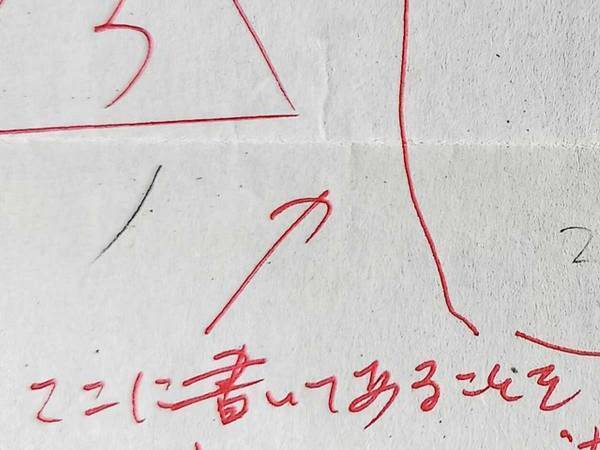 ここに書いてあることを